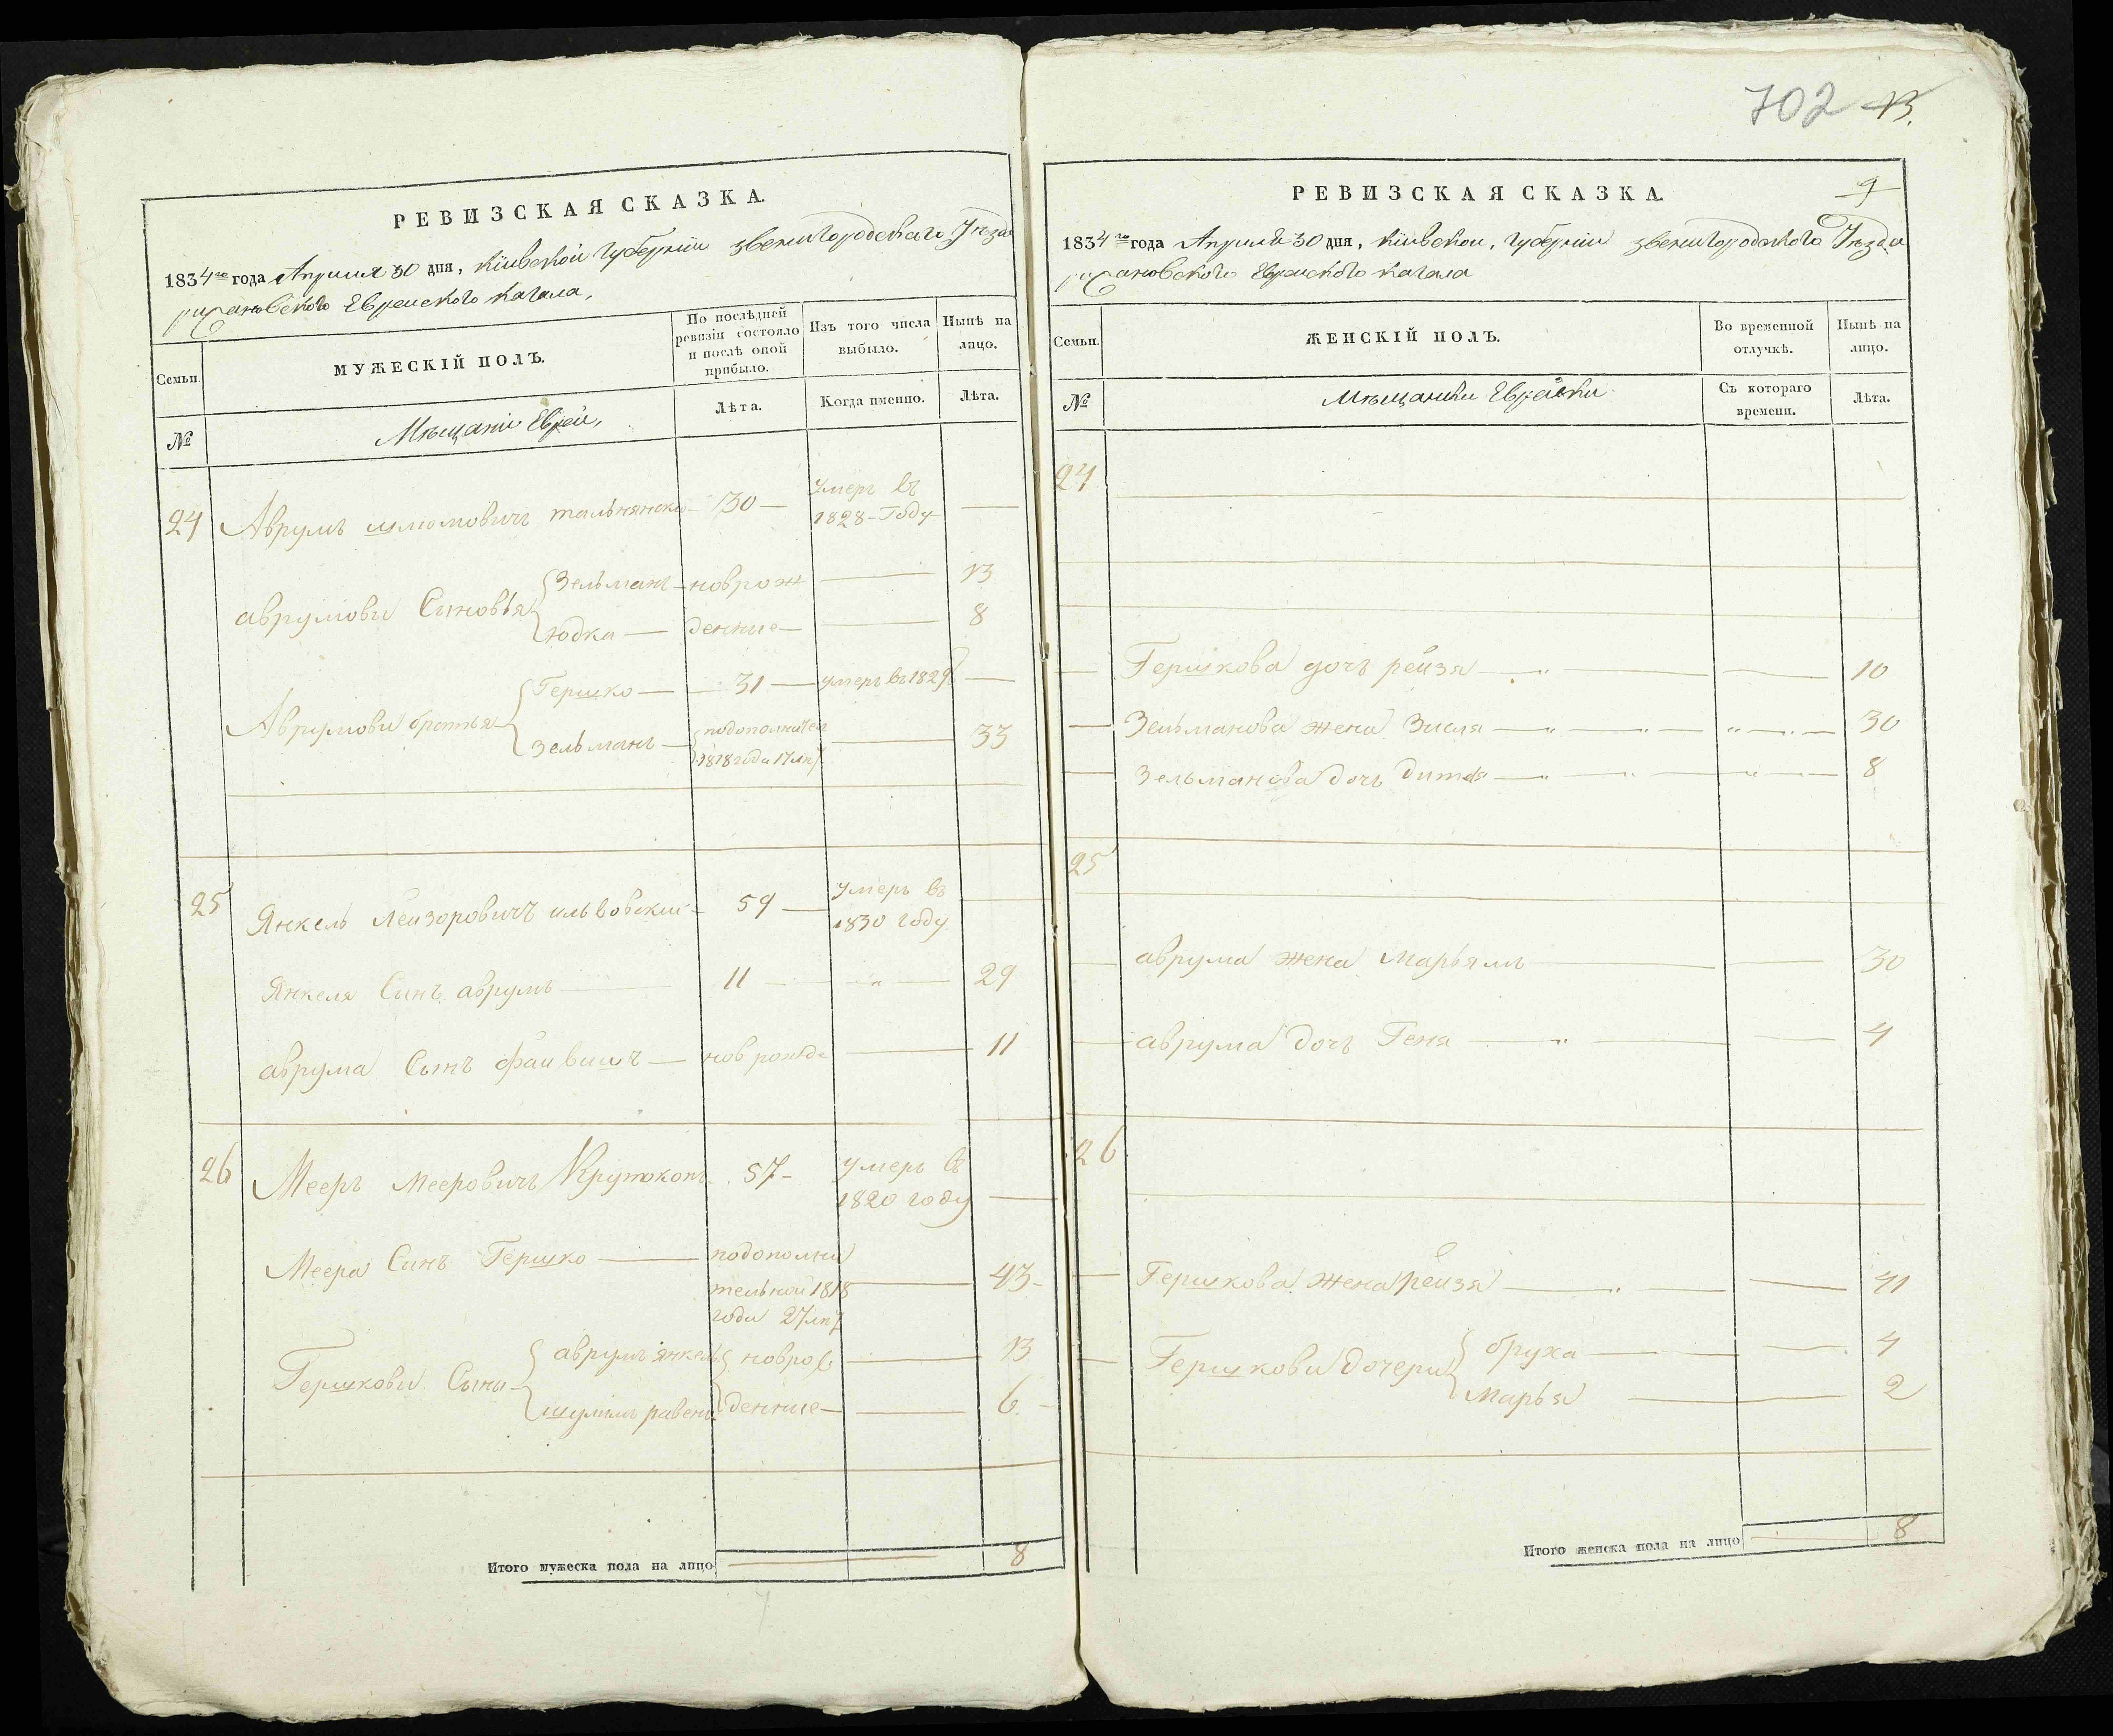 702 13.
РЕВИЗСКАЯ СКАЗКА.
1834го года Априля 30 дня, Кіивской Губерніи Звенигородскаго Уѣзда
рижановского Еврейского Кагала,
Семьи.
МУЖЕСКІЙ ПОЛЪ.
По послѣдней ревизіи состояло и послѣ оной прибыло.
Изъ того числа выбыло.
Нынѣ на лицо.
№
Мѣщаніе Евреи,
Лѣта.
Когда именно.
Лѣта.
24 Аврумъ шмомовичъ тальнянски 30 — умеръ въ 1828 Году —
аврумови Синовья { Зельманъ — новрож — 13
юдка — денние — 8
Аврумови братья { Гершко — 31 — умеръ въ 1829 —
Зельманъ — { подополнител 1818 года 17 лѣ — 33
25 Янкель Лейзоровичъ ильвовский 59 — умеръ въ 1830 году
Янкеля Синъ аврумъ — 11 — „ — 29
аврума Сынъ файвишъ — новрожде — 11
26 Мееръ Мееровичъ Крутоконъ 57 — умеръ въ 1820 году —
Меера Синъ Гершко — подополни тельной 1818 года 27 лѣ — 43
Гершкови Сыны { аврумъ янкель { новрож — 13
шулимъ равенъ { денние — 6
Итого мужеска пола на лицо 8
7
РЕВИЗСКАЯ СКАЗКА. 9
1834го года Априля 30 дня, Кіивской, Губерніи Звенигородского Уѣзда
рижановского Еврейского Кагала
Семьи.
ЖЕНСКІЙ ПОЛЪ.
Во временной отлучкѣ.
Нынѣ на лицо.
№
Мѣщанки Еврейки
Съ котораго времени.
Лѣта.
24
— Гершкова дочъ рейзя — „ — 10
— Зельманова жена Зисля — „ — „ — 30
— Зельманова дочъ Дитя — „ — „ — 8
25
аврума жена Марьямъ — 30
аврума дочъ Геня — „ — 4
26
— Гершкова жена рейзя — „ — 41
— Гершкови дочери { бруха — 4
Марья — 2
Итого женска пола на лицо 8